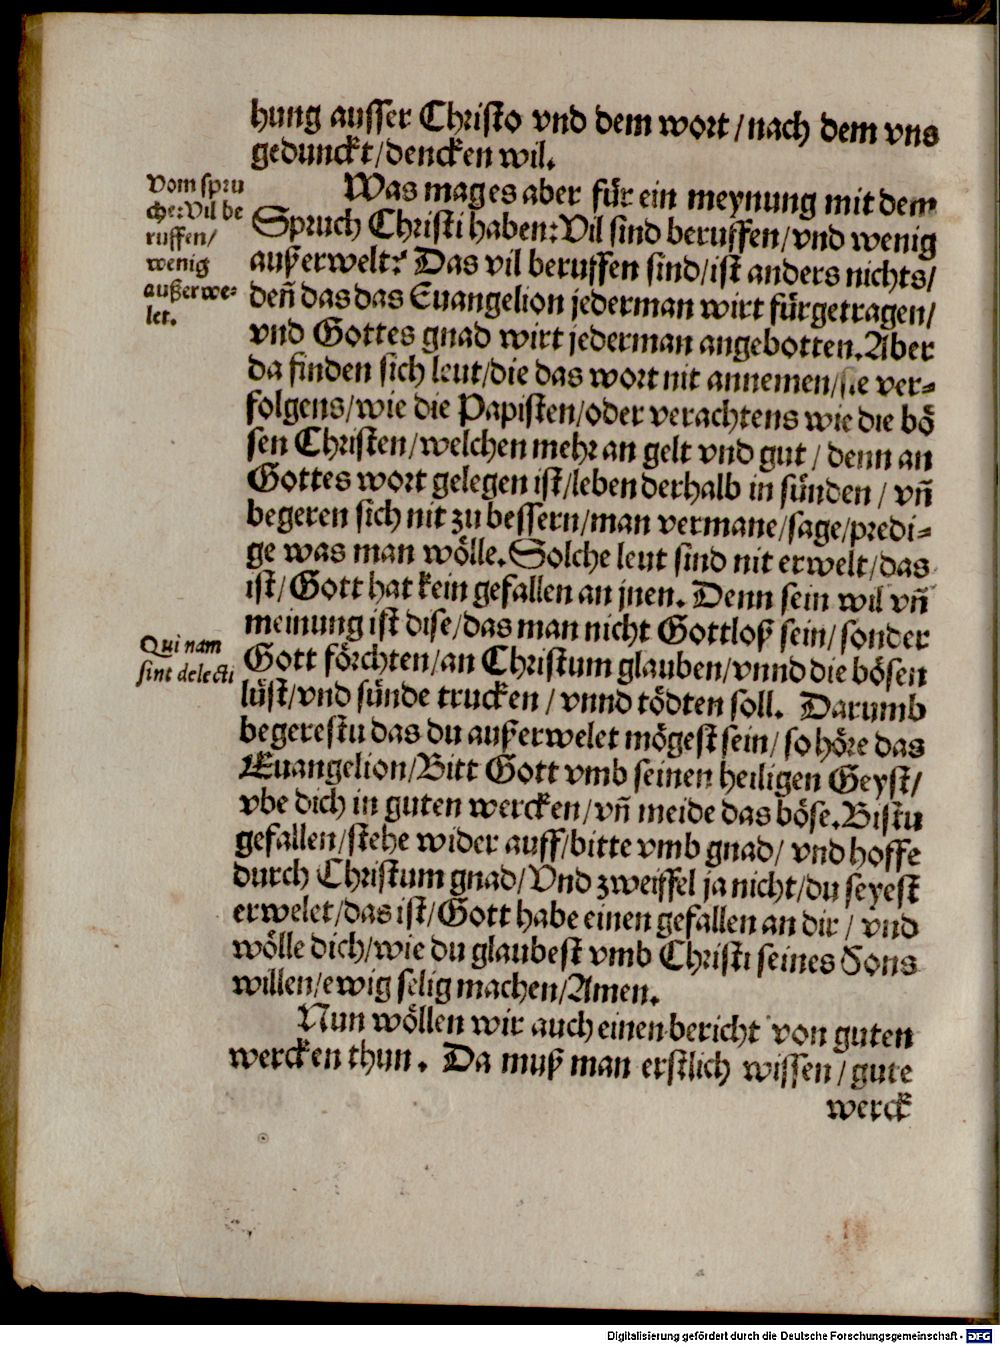 hung ausser Christo vnd dem wort / nach dem vns
gedunckt / dencken wil.
Vom spru
che: Vil be
ruffen /
wenig
außerwe-
let.
Was mag es aber für ein meynung mit dem
Spruch Christi haben: Vil sind beruffen / vnd wenig
außerwelt? Das vil beruffen sind / ist anders nichts /
deñ das das Euangelion jederman wirt fürgetragen /
vnd Gottes gnad wirt jederman angebotten. Aber
da finden sich leut / die das wort nit annemen / sie ver-
folgens / wie die Papisten / oder verachtens wie die bö
sen Christen / welchen mehr an gelt vnd gut / denn an
Gottes wort gelegen ist / leben derhalb in sünden / vñ
begeren sich nit zu bessern / man vermane / sage / predi-
ge was man wölle. Solche leut sind nit erwelt / das
ist / Gott hat kein gefallen an jnen. Denn sein wil vñ
meinung ist dise / das man nicht Gottloß sein / sonder
Qui nam
sint delecti
Gott förchten / an Christum glauben / vnnd die bösen
lüst / vnd sünde trucken / vnnd tödten soll. Darumb
begerestu das du außerwelet mögest sein / so höre das
Euangelion / Bitt Gott vmb seinen heiligen Geyst /
vbe dich in guten wercken / vñ meide das böse. Bistu
gefallen / stehe wider auff / bitte vmb gnad / vnd hoffe
durch Christum gnad / Vnd zweiffel ja nicht / du seyest
erwelet / das ist / Gott habe einen gefallen an dir / vnd
wölle dich / wie du glaubest vmb Christi seines Sons
willen / ewig selig machen / Amen.
Nun wöllen wir auch einen bericht von guten
wercken thun. Da muß man erstlich wissen / gute
werck
Digitalisierung gefördert durch die Deutsche Forschungsgemeinschaft - DFG